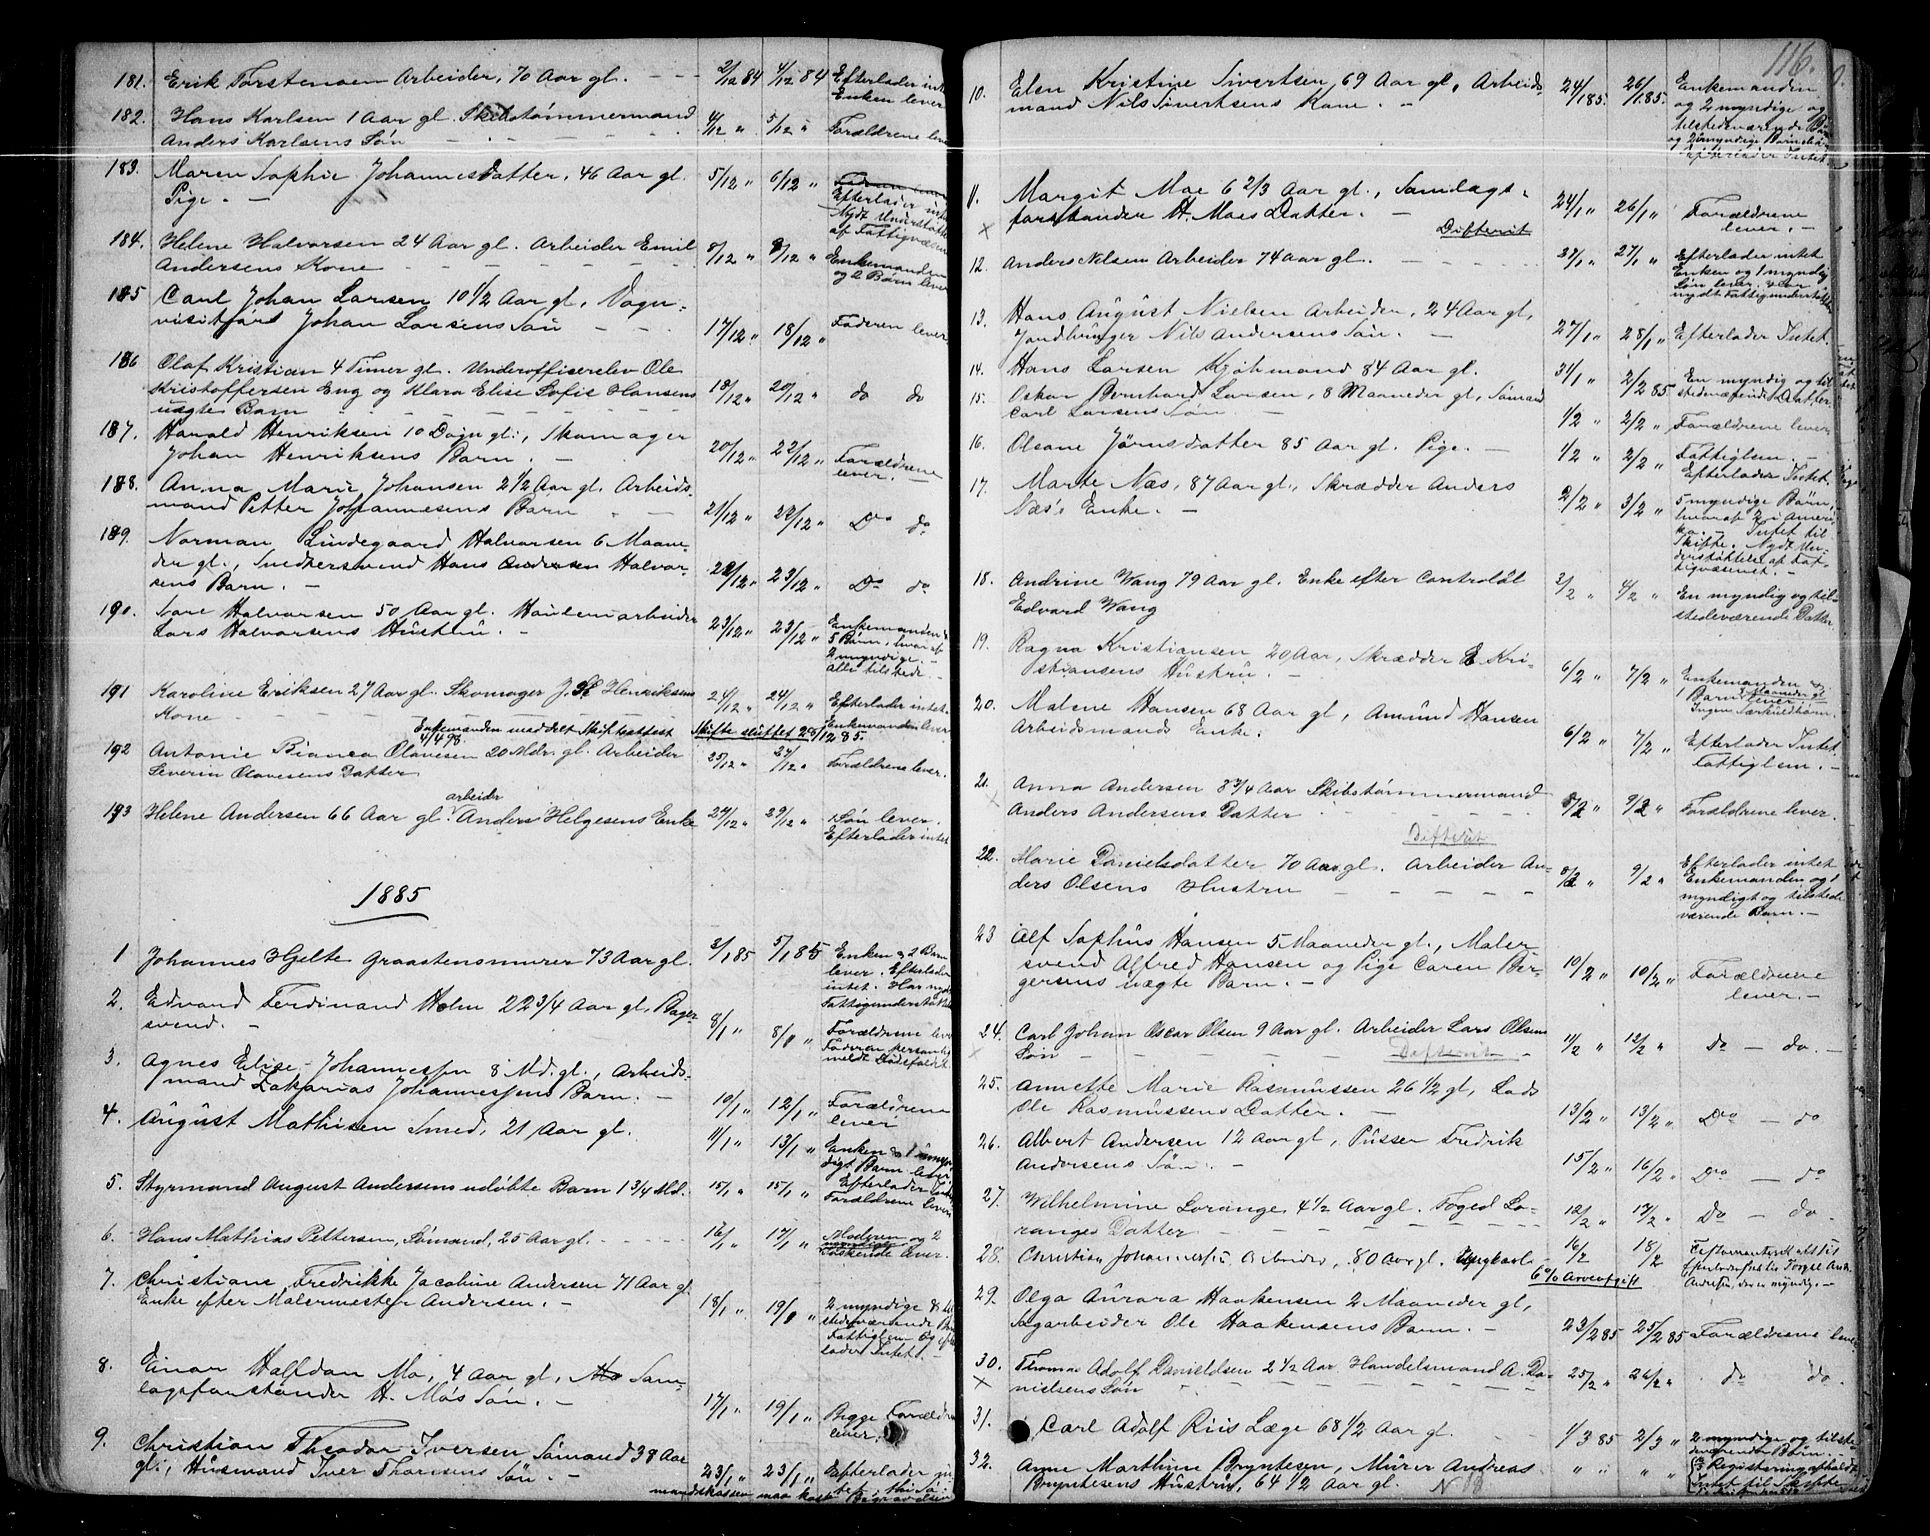 181. Erik Torstensen Arbeider, 70 Aar gl. - - - 2/12 84 4/12 84 Efterlader intet
Enken lever
182. Hans Karlsen 1 Aar gl. Skibstømmermand
Anders Karlsens Søn - - - 4/12 " 5/12 " Forældrene lever
183. Maren Sophie Johannesdatter, 46 Aar gl.
Pige. - 5/12 " 6/12 " Efterlader intet
Nydt Understøttelse
af Fattigvæsen
184. Helene Halvorsen 24 Aar gl. Arbeider Emil
Andersens Kone - - - - 8/12 " 8/12 " Enkemanden
og 2 Børn lever
185 Carl Johan Larsen 10 1/2 Aar gl, Vogn-
visitør Johan Larsens Søn - - 17/12 " 18/12 " Faderen lever
186 Olaf Kristian 4 Timer gl. Underofficerelev Ole
Kristoffersen Eng og Klara Elise Sofie Hansens
uægte Barn - - - 18/12 " 20/12 " do do
187. Harald Henriksen 10 Dage gl., Skomager
Johan Henriksens Barn. - 20/12 " 22/12 " Forældrene
lever. -
188. Anna Marie Johansen 2 1/2 Aar gl. Arbeids-
mand Petter Johannesens Barn - 21/12 " 22/12 " Do do
189. Norman Lindegaard Halvorsen 6 Maane-
der gl., Snedkersvend Hans Andersen Halvor-
sens Barn. - 22/12 " 23/12 " Do do
190. Halvorsen 50 Aar gl.
Lars Halvorsens Hustru. - 23/12 " 23/12 " Enkemanden &
5 Børn, hvoraf
2 myndige. -
alle tilstede. -
191 Karoline Eriksen 27 Aar gl. Skomager J. Henriksens
Kone - - - - - 24/12 " 24/12 " Efterlader intet
Enkemanden lever
Enkemanden meddelt Skifteattest Skifte sluttet
192 Antonie Bianca Olavesen 20 Mdr. gl. Arbeider
Severin Olavesens Datter 25/12 " 27/12 " Forældrene lever.
193 Helene Andersen 66 Aar gl. arbeider Anders Helgesens Enke 27/12 " 29/12 " 1 Søn lever.
Efterlader intet
1885
1 Johannes Hjelte Graastensmurer 73 Aar gl. 3/1 85 5/1 85 Enken og 2 Barn
lever. Efterlader
intet. Har nydt
Fattigunderstøttelse
2. Edvard Ferdinand Holm 22 3/4 Aar gl, Bager-
svend. - 8/1 " 8/1 " Forældrene lever
Faderen personlig
meldt Dødsfaldet
3. Agnes Elise Johannessen 8 Md. gl., Arbeids-
mand Zakarias Johannessens Barn. - 10/1 " 12/1 " Forældrene
lever
4. August Mathisen Smed, 21 Aar gl. 11/1 " 13/1 " Enken & 1 umyn-
digt Barn lever
Efterlader
5. Styrmand August Andersens udøbte Barn 1 3/4 Md. 15/1 " 15/1 " Forældrene lever
6. Hans Mathias Pettersen, Sømand, 25 Aar gl. - - - - 16/1 " 17/1 " Moderen og 2
Søskende lever
7. Christiane Fredrikke Jacobine Andersen 71 Aar gl
Enke efter Malermester Andersen. - 18/1 " 19/1 " 2 myndige & til
stedeværende
Fattiglem og efter-
lader Intet. -
8. Einar Halfdan Mo, 4 Aar gl, Sam-
lagsforstander H. Mo's Søn. - 17/1 " 19/1 " Begge Forældre
lever.
9. Christian Theodor Iversen Sømand 38 Aar
gl., Husmand Iver Thoresens Søn. - 23/1 " 23/1 " Efterlader in-
tet
116.
10. Elen Kristine Sivertsen, 69 Aar gl, Arbeids-
mand Nils Sivertsens Kone. - 24/1 85. 26/1 85. Enkemanden
og 2 myndige og
tilstedeværende
11. Margit Moe 6 2/3 Aar gl., Samlags-
forstander H. Moes Datter. - 24/1 " 26/1 " Forældrene
lever. -
× Difterit
12. Anders Nilsen Arbeider 74 Aar gl. - - - 27/1 " 27/1 " Efterlader intet
Enken og 1 myndig
Søn lever.
nydt Fattigunderstøttelse
13. Hans August Nielsen Arbeider, 24 Aar gl,
Jordbruger Nils Andersens Søn. - 27/1 " 28/1 " Efterlader Intet.
14. Hans Larsen Kjøbmand 84 Aar gl. 31/1 " 2/2 85 En myndig og til
stedeværende Datter.
15. Oskar Bernhard Larsen, 8 Maaneder gl, Sømand
Carl Larsens Søn - 1/2 " 2/2 " Forældrene lever
16. Olsane Jørnsdatter 85 Aar gl. Pige. - 1/2 " 2/2 " Fattiglem. -
Efterlader Intet.
17. Marte Næs, 87 Aar gl., Skrædder Anders
Næs's Enke. - 2/2 " 3/2 " 5 myndige Børn,
hvoraf 2 i Ameri-
ka. - Intet til
Skifte. Nydt Un-
derstøttelse af Fat-
tigvæsenet. -
18. Andrine Wang 79 Aar gl. Enke efter Controlør
Edvard Wang 3/2 " 4/2 " En myndig og til-
stedeværende Datter.
19. Ragna Kristiansen 20 Aar, Skrædder E Kri-
stiansens Hustru. - 6/2 " 7/2 " Enkemanden &
1 Barn Maaneder gl
lever. -
Ingen Særkuldbørn.
20. Malene Hansen 68 Aar gl, Amund Hansen
Arbeidsmands Enke. 6/2 " 7/2 " Efterlader Intet
Fattiglem. -
21. Anna Andersen 8 3/4 Aar Skibstømmermand
Anders Andersens Datter - - - 8/2 " 9/2 " Forældrene lever.
Difterit
22. Marie Danielsdatter 70 Aar gl. Arbeider An-
ders Olsens Hustru - - - - 8/2 " 9/2 " Efterlader intet
Enkemanden og 1
myndigt og tilstede
værende Barn. -
23 Alf Sophus Hansen 5 Maaneder gl., Maler
svend Alfred Hansen og Pige Caren Ber-
gersens uægte Barn. - 10/2 " 10/2 " Forældrene
lever. -
24. Carl Johan Oscar Olsen 9 Aar gl. Arbeider Lars Olsens
Søn - - - 11/2 " 12/2 " Do - do. -
× Difterit
25. Annette Marie Rasmussen 26 1/2 gl, Lods
Ole Rasmussens Datter. - 13/2 " 13/2 " Do - do
26. Albert Andersen 12 Aar gl, Pusser Fredrik
Andersens Søn. - 15/2 " 16/2 " Do - do
27. Wilhelmine Lorange 4 1/2 Aar gl. Foged Lo-
ranges Datter - - - - 12/2 " 17/2 " Do - do.
28. Christian Johannessen Arbeider, 80 Aar gl. Ungkarl - 16/2 18/2
6% Arveafgift
29. Olga Aurora Haakensen 2 Maaneder gl,
Sagarbeider Ole Haakensens Barn. - 23/2 85 25/2 85 Forældrene lever
30. Thomas Adolf Danielsen 2 1/2 Aar Handelsmand A. Da-
nielsens Søn - - - 25/2 " 26/2 " do do.
×
31. Carl Adolf Riis Læge 68 1/2 Aar gl. 1/3 85 2/3 " 2 myndige og tilste
deværende Børn. -
32. Anne Marthine Bryntesen, Murer Andreas
Bryntesens Hustru, 64 1/2 Aar gl. " " " " Registrering afholdt
Intet til Skifte